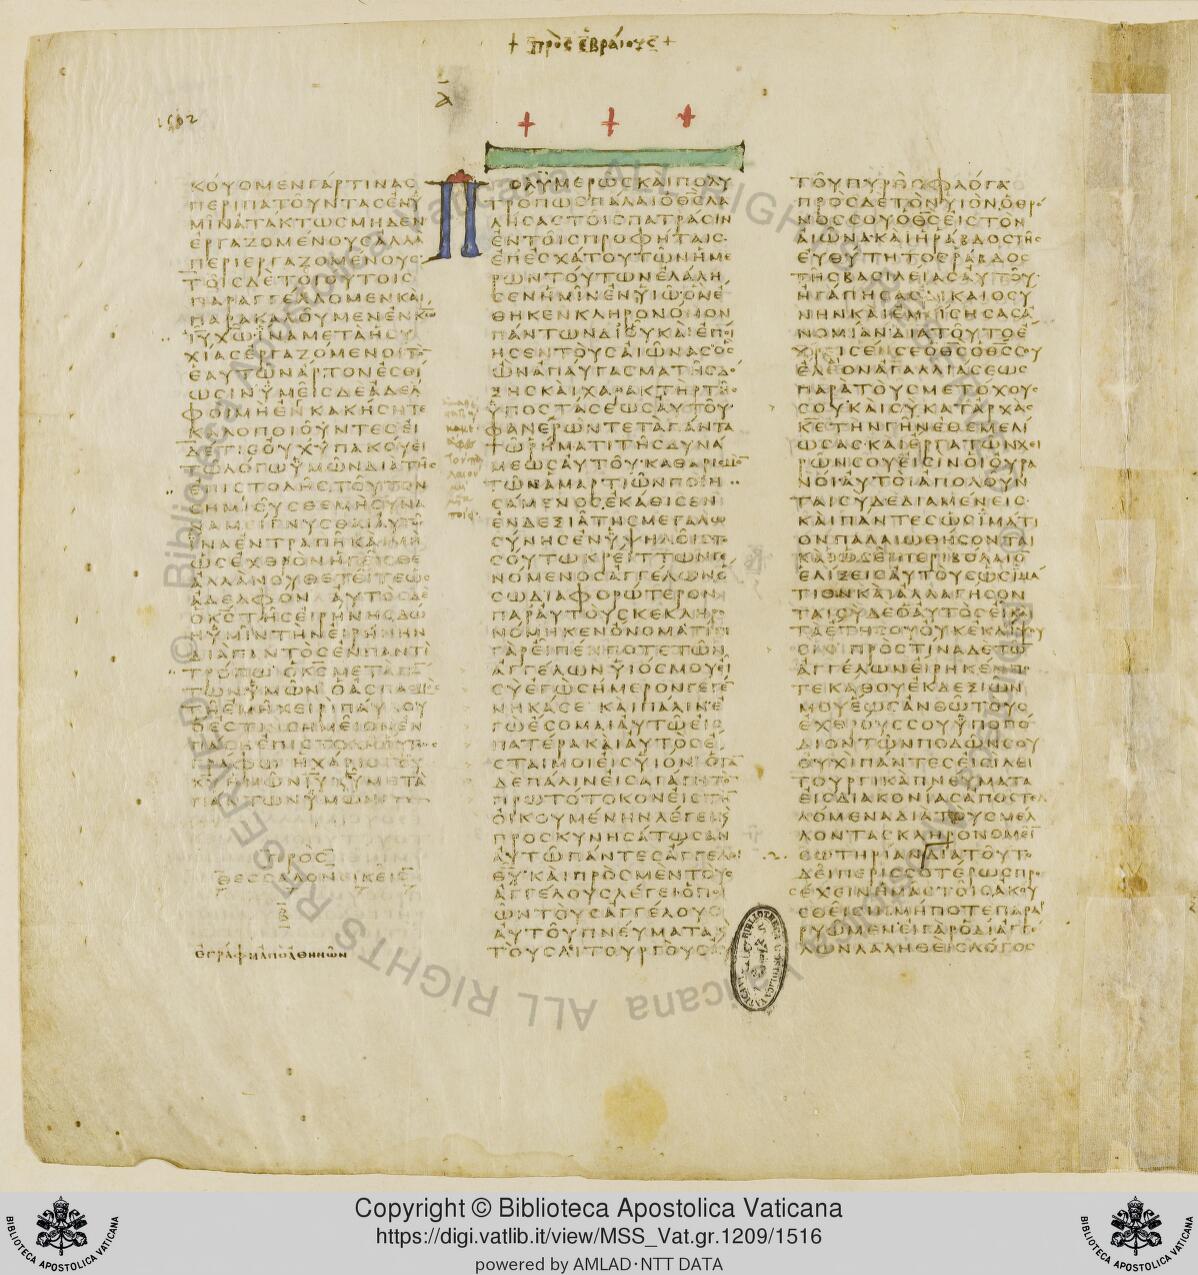 + πρὸς ἑβραίους +
1512
ΚΟΥΟΜΕΝΓΑΡΤΙΝΑΣ
ΠΕΡΙΠΑΤΟΥΝΤΑΣΕΝΥ
ΜΙΝΑΤΑΚΤΩΣΜΗΔΕΝ
ΕΡΓΑΖΟΜΕΝΟΥΣΑΛΛΑ
ΠΕΡΙΕΡΓΑΖΟΜΕΝΟΥΣ
ΤΟΙΣΔΕΤΟΙΟΥΤΟΙΣ
ΠΑΡΑΓΓΕΛΛΟΜΕΝΚΑΙ
ΠΑΡΑΚΑΛΟΥΜΕΝΕΝΚΩ
ΙΥΧΩΙΝΑΜΕΤΑΗΣΥ
ΧΙΑΣΕΡΓΑΖΟΜΕΝΟΙΤΟ
ΕΑΥΤΩΝΑΡΤΟΝΕΣΘΙ
ΩΣΙΝΥΜΕΙΣΔΕΑΔΕΛ
ΦΟΙΜΗΕΝΚΑΚΗΣΗΤΕ
ΚΑΛΟΠΟΙΟΥΝΤΕΣΕΙ
ΔΕΤΙΣΟΥΧΥΠΑΚΟΥΕΙ
ΤΩΛΟΓΩΥΜΩΝΔΙΑΤΗΣ
ΕΠΙΣΤΟΛΗΣΤΟΥΤΟΝ
ΣΗΜΙΟΥΣΘΕΜΗΣΥΝΑ
ΝΑΜΕΙΓΝΥΣΘΑΙΑΥΤΩ
ΙΝΑΕΝΤΡΑΠΗΚΑΙΜΗ
ΩΣΕΧΘΡΟΝΗΓΕΙΣΘΕ
ΑΛΛΑΝΟΥΘΕΤΕΙΤΕΩΣ
ΑΔΕΛΦΟΝ ΑΥΤΟΣΔΕ
ΟΚΣΤΗΣΕΙΡΗΝΗΣΔΩ
ΗΥΜΙΝΤΗΝΕΙΡΗΝΗΝ
ΔΙΑΠΑΝΤΟΣΕΝΠΑΝΤΙ
ΤΡΟΠΩ ΟΚΣΜΕΤΑΠΑ
ΤΩΝΥΜΩΝ ΟΑΣΠΑΣΜΟΣ
ΤΗΕΜΗΧΕΙΡΙΠΑΥΛΟΥ
ΟΕΣΤΙΝΣΗΜΕΙΟΝΕΝ
ΠΑΣΗΕΠΙΣΤΟΛΗΟΥΤΩΣ
ΓΡΑΦΩ ΗΧΑΡΙΣΤΟΥ
ΚΥΗΜΩΝΙΥΧΥΜΕΤΑ
ΠΑΝΤΩΝΥΜΩΝ
ΠΡΟΣ
ΘΕΣΣΑΛΟΝΕΙΚΕΙΣ
Β
ΕΓΡΑΦΗΑΠΟΑΘΗΝΩΝ
ΠΟΛΥΜΕΡΩΣΚΑΙΠΟΛΥ
ΤΡΟΠΩΣΠΑΛΑΙΟΘΣΛΑ
ΛΗΣΑΣΤΟΙΣΠΑΤΡΑΣΙΝ
ΕΝΤΟΙΣΠΡΟΦΗΤΑΙΣ
ΕΠΕΣΧΑΤΟΥΤΩΝΗΜΕ
ΡΩΝΤΟΥΤΩΝΕΛΑΛΗ
ΣΕΝΗΜΙΝΕΝΥΙΩΟΝΕ
ΘΗΚΕΝΚΛΗΡΟΝΟΜΟΝ
ΠΑΝΤΩΝΔΙΟΥΚΑΙΕΠΟΙ
ΗΣΕΝΤΟΥΣΑΙΩΝΑΣΟΣ
ΩΝΑΠΑΥΓΑΣΜΑΤΗΣΔΟ
ΞΗΣΚΑΙΧΑΡΑΚΤΗΡΤΗΣ
ΥΠΟΣΤΑΣΕΩΣΑΥΤΟΥ
ΦΑΝΕΡΩΝΤΕΤΑΠΑΝΤΑ
ΤΩΡΗΜΑΤΙΤΗΣΔΥΝΑ
ΜΕΩΣΑΥΤΟΥΚΑΘΑΡΙΣΜΟΝ
ΤΩΝΑΜΑΡΤΙΩΝΠΟΙΗ
ΣΑΜΕΝΟΣΕΚΑΘΙΣΕΝ
ΕΝΔΕΞΙΑΤΗΣΜΕΓΑΛΩ
ΣΥΝΗΣΕΝΥΨΗΛΟΙΣΤΟ
ΣΟΥΤΩΚΡΕΙΤΤΩΝΓΕ
ΝΟΜΕΝΟΣΑΓΓΕΛΩΝΟ
ΣΩΔΙΑΦΟΡΩΤΕΡΟΝ
ΠΑΡΑΥΤΟΥΣΚΕΚΛΗΡΟ
ΝΟΜΗΚΕΝΟΝΟΜΑΤΙΝΙ
ΓΑΡΕΙΠΕΝΠΟΤΕΤΩΝ
ΑΓΓΕΛΩΝΥΙΟΣΜΟΥΕΙ
ΣΥΕΓΩΣΗΜΕΡΟΝΓΕΓΕ
ΝΗΚΑΣΕ ΚΑΙΠΑΛΙΝΕ
ΓΩΕΣΟΜΑΙΑΥΤΩΕΙΣ
ΠΑΤΕΡΑΚΑΙΑΥΤΟΣΕ
ΣΤΑΙΜΟΙΕΙΣΥΙΟΝ ΟΤΑ
ΔΕΠΑΛΙΝΕΙΣΑΓΑΓΗΤΟ
ΠΡΩΤΟΤΟΚΟΝΕΙΣΤΗ
ΟΙΚΟΥΜΕΝΗΝΛΕΓΕΙΚΑΙ
ΠΡΟΣΚΥΝΗΣΑΤΩΣΑΝ
ΑΥΤΩΠΑΝΤΕΣΑΓΓΕΛΟΙ
ΘΥ ΚΑΙΠΡΟΣΜΕΝΤΟΥΣ
ΑΓΓΕΛΟΥΣΛΕΓΕΙΟΠΟΙ
ΩΝΤΟΥΣΑΓΓΕΛΟΥΣ
ΑΥΤΟΥΠΝΕΥΜΑΤΑ
ΤΟΥΣΛΙΤΟΥΡΓΟΥΣΑΥ
ΤΟΥΠΥΡΟΣΦΛΟΓΑ
ΠΡΟΣΔΕΤΟΝΥΙΟΝΟΘΡΟ
ΝΟΣΣΟΥΟΘΣΕΙΣΤΟΝ
ΑΙΩΝΑΚΑΙΗΡΑΒΔΟΣΤΗΣ
ΕΥΘΥΤΗΤΟΣΡΑΒΔΟΣ
ΤΗΣΒΑΣΙΛΕΙΑΣΑΥΤΟΥ
ΗΓΑΠΗΣΑΣΔΙΚΑΙΟΣΥ
ΝΗΝΚΑΙΕΜΙΣΗΣΑΣΑ
ΝΟΜΙΑΝΔΙΑΤΟΥΤΟΕ
ΧΡΕΙΣΕΝΣΕΟΘΣΟΘΣΣΟΥ
ΕΛΕΟΝΑΓΑΛΛΙΑΣΕΩΣ
ΠΑΡΑΤΟΥΣΜΕΤΟΧΟΥΣ
ΣΟΥΚΑΙΣΥΚΑΤΑΡΧΑΣ
ΚΕΤΗΝΓΗΝΕΘΕΜΕΛΙ
ΩΣΑΣΚΑΙΕΡΓΑΤΩΝΧΕΙ
ΡΩΝΣΟΥΕΙΣΙΝΟΙΟΥΡΑ
ΝΟΙΑΥΤΟΙΑΠΟΛΟΥΝ
ΤΑΙΣΥΔΕΔΙΑΜΕΝΕΙΣ
ΚΑΙΠΑΝΤΕΣΩΣΙΜΑΤΙ
ΟΝΠΑΛΑΙΩΘΗΣΟΝΤΑΙ
ΚΑΙΩΣΕΙΠΕΡΙΒΟΛΑΙΟ
ΕΛΙΞΕΙΣΑΥΤΟΥΣΩΣΙΜΑ
ΤΙΟΝΚΑΙΑΛΛΑΓΗΣΟΝ
ΤΑΙΣΥΔΕΟΑΥΤΟΣΕΙΚΑΙ
ΤΑΕΤΗΣΟΥΟΥΚΕΚΛΙΨΟΥ
ΣΙΝ ΠΡΟΣΤΙΝΑΔΕΤΩ
ΑΓΓΕΛΩΝΕΙΡΗΚΕΝΠΟ
ΤΕΚΑΘΟΥΕΚΔΕΞΙΩΝ
ΜΟΥΕΩΣΑΝΘΩΤΟΥΣ
ΕΧΘΡΟΥΣΣΟΥΥΠΟΠΟ
ΔΙΟΝΤΩΝΠΟΔΩΝΣΟΥ
ΟΥΧΙΠΑΝΤΕΣΕΙΣΙΛΕΙ
ΤΟΥΡΓΙΚΑΠΝΕΥΜΑΤΑ
ΕΙΣΔΙΑΚΟΝΙΑΣΑΠΟΣΤΕΛ
ΛΟΜΕΝΑΔΙΑΤΟΥΣΜΕΛ
ΛΟΝΤΑΣΚΛΗΡΟΝΟΜΕΙ
ΣΩΤΗΡΙΑΝΔΙΑΤΟΥΤΟ
ΔΕΙΠΕΡΙΣΣΟΤΕΡΩΣΠΡΟΣ
ΕΧΕΙΝΗΜΑΣΤΟΙΣΑΚΟΥ
ΣΘΕΙΣΙΜΗΠΟΤΕΠΑΡΑ
ΡΥΩΜΕΝΕΙΓΑΡΟΔΙΑΓΓΕ
ΛΩΝΛΑΛΗΘΕΙΣΛΟΓΟΣ
Copyright © Biblioteca Apostolica Vaticana
https://digi.vatlib.it/view/MSS_Vat.gr.1209/1516
powered by AMLAD·NTT DATA
BIBLIOTECA APOSTOLICA VATICANA
BIBLIOTECA APOSTOLICA VATICANA